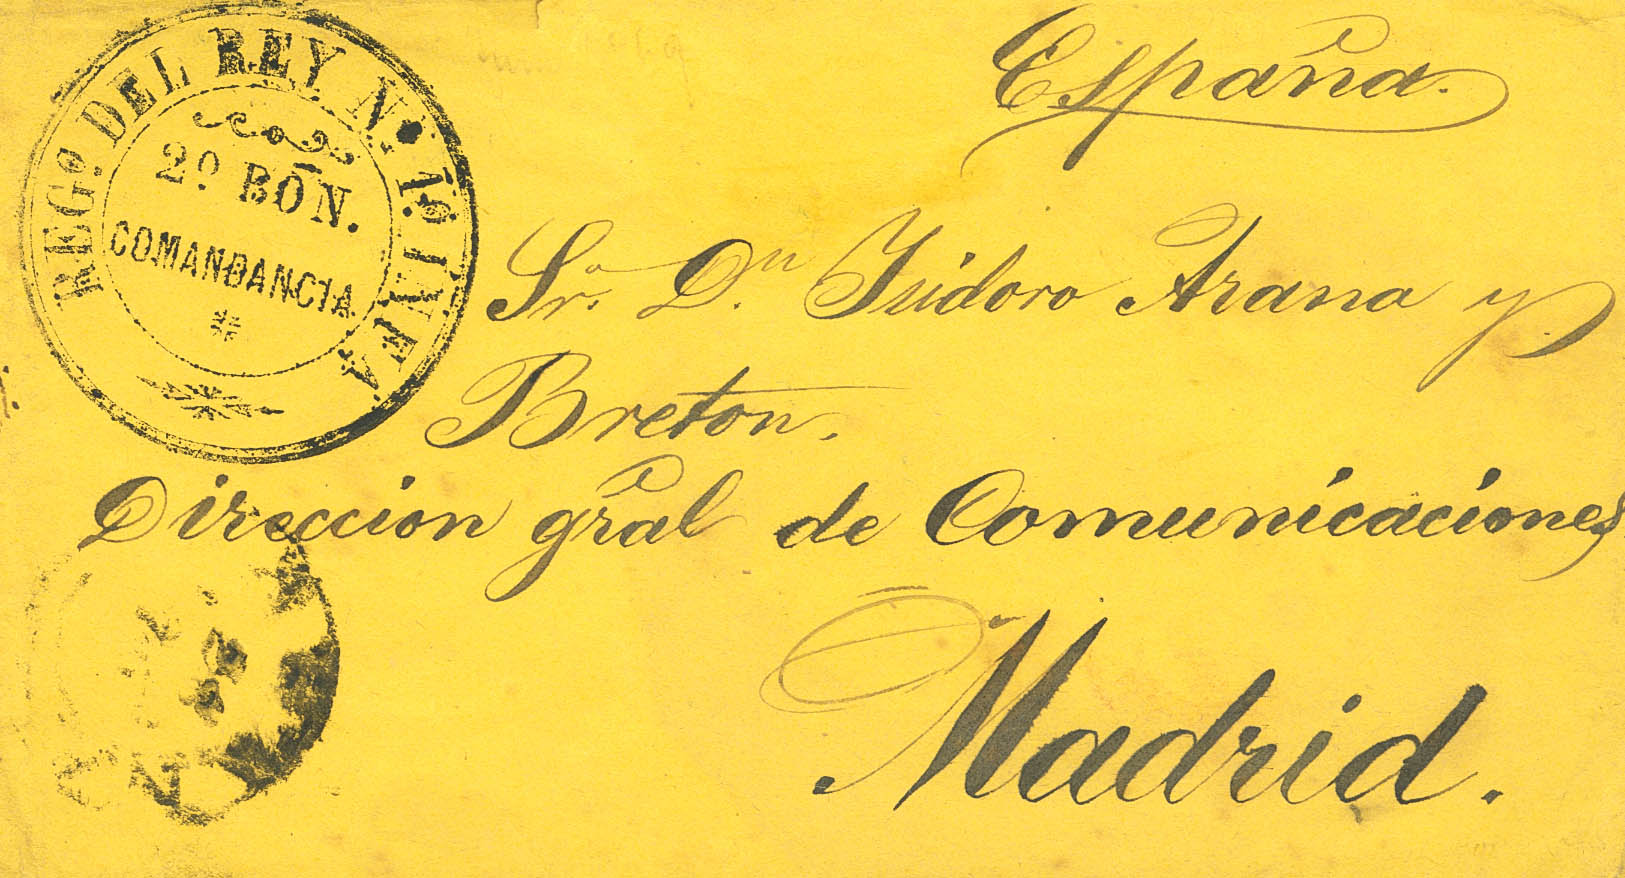 REGº. DEL REY Nº. 1º. INFA
2º. BÓN.
COMANDANCIA
España.
Sr. Dn. Isidoro Arana y
Breton.
Direccion gral de Comunicaciones
Madrid.